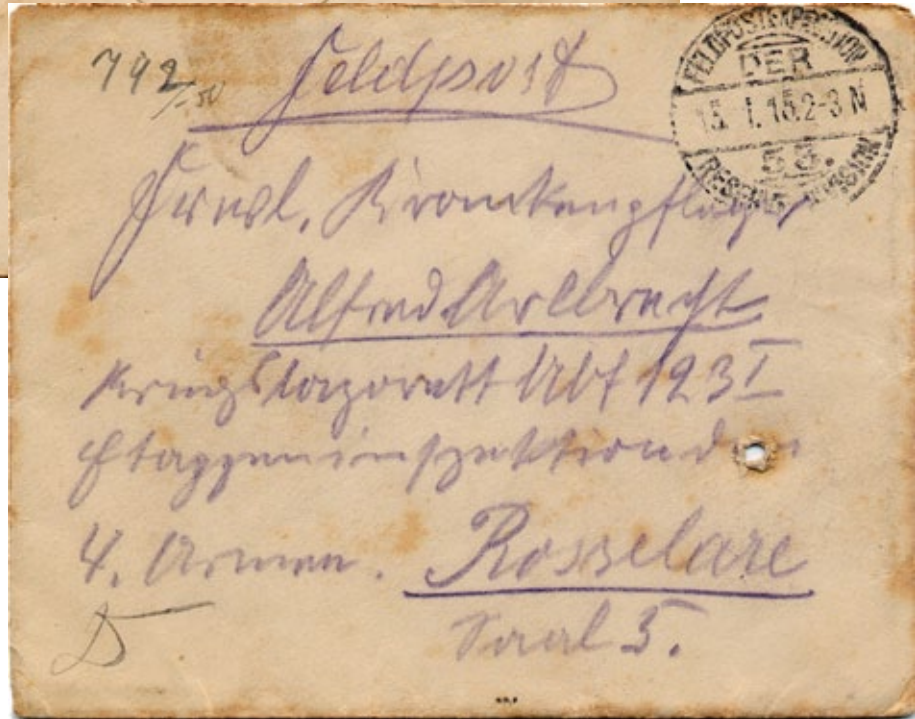 792
Feldpost
FELDPOSTEXPEDITION
DER
15. 1. 15. 2-3 N
53.
RESERVE-DIVISION
Freiwl. Krankenpfleger
Alfred Arlbrecht
Kriegslazarett Abt 123 I
Etappeninspektion der
4. Armee. Rosselare
Saal 5.